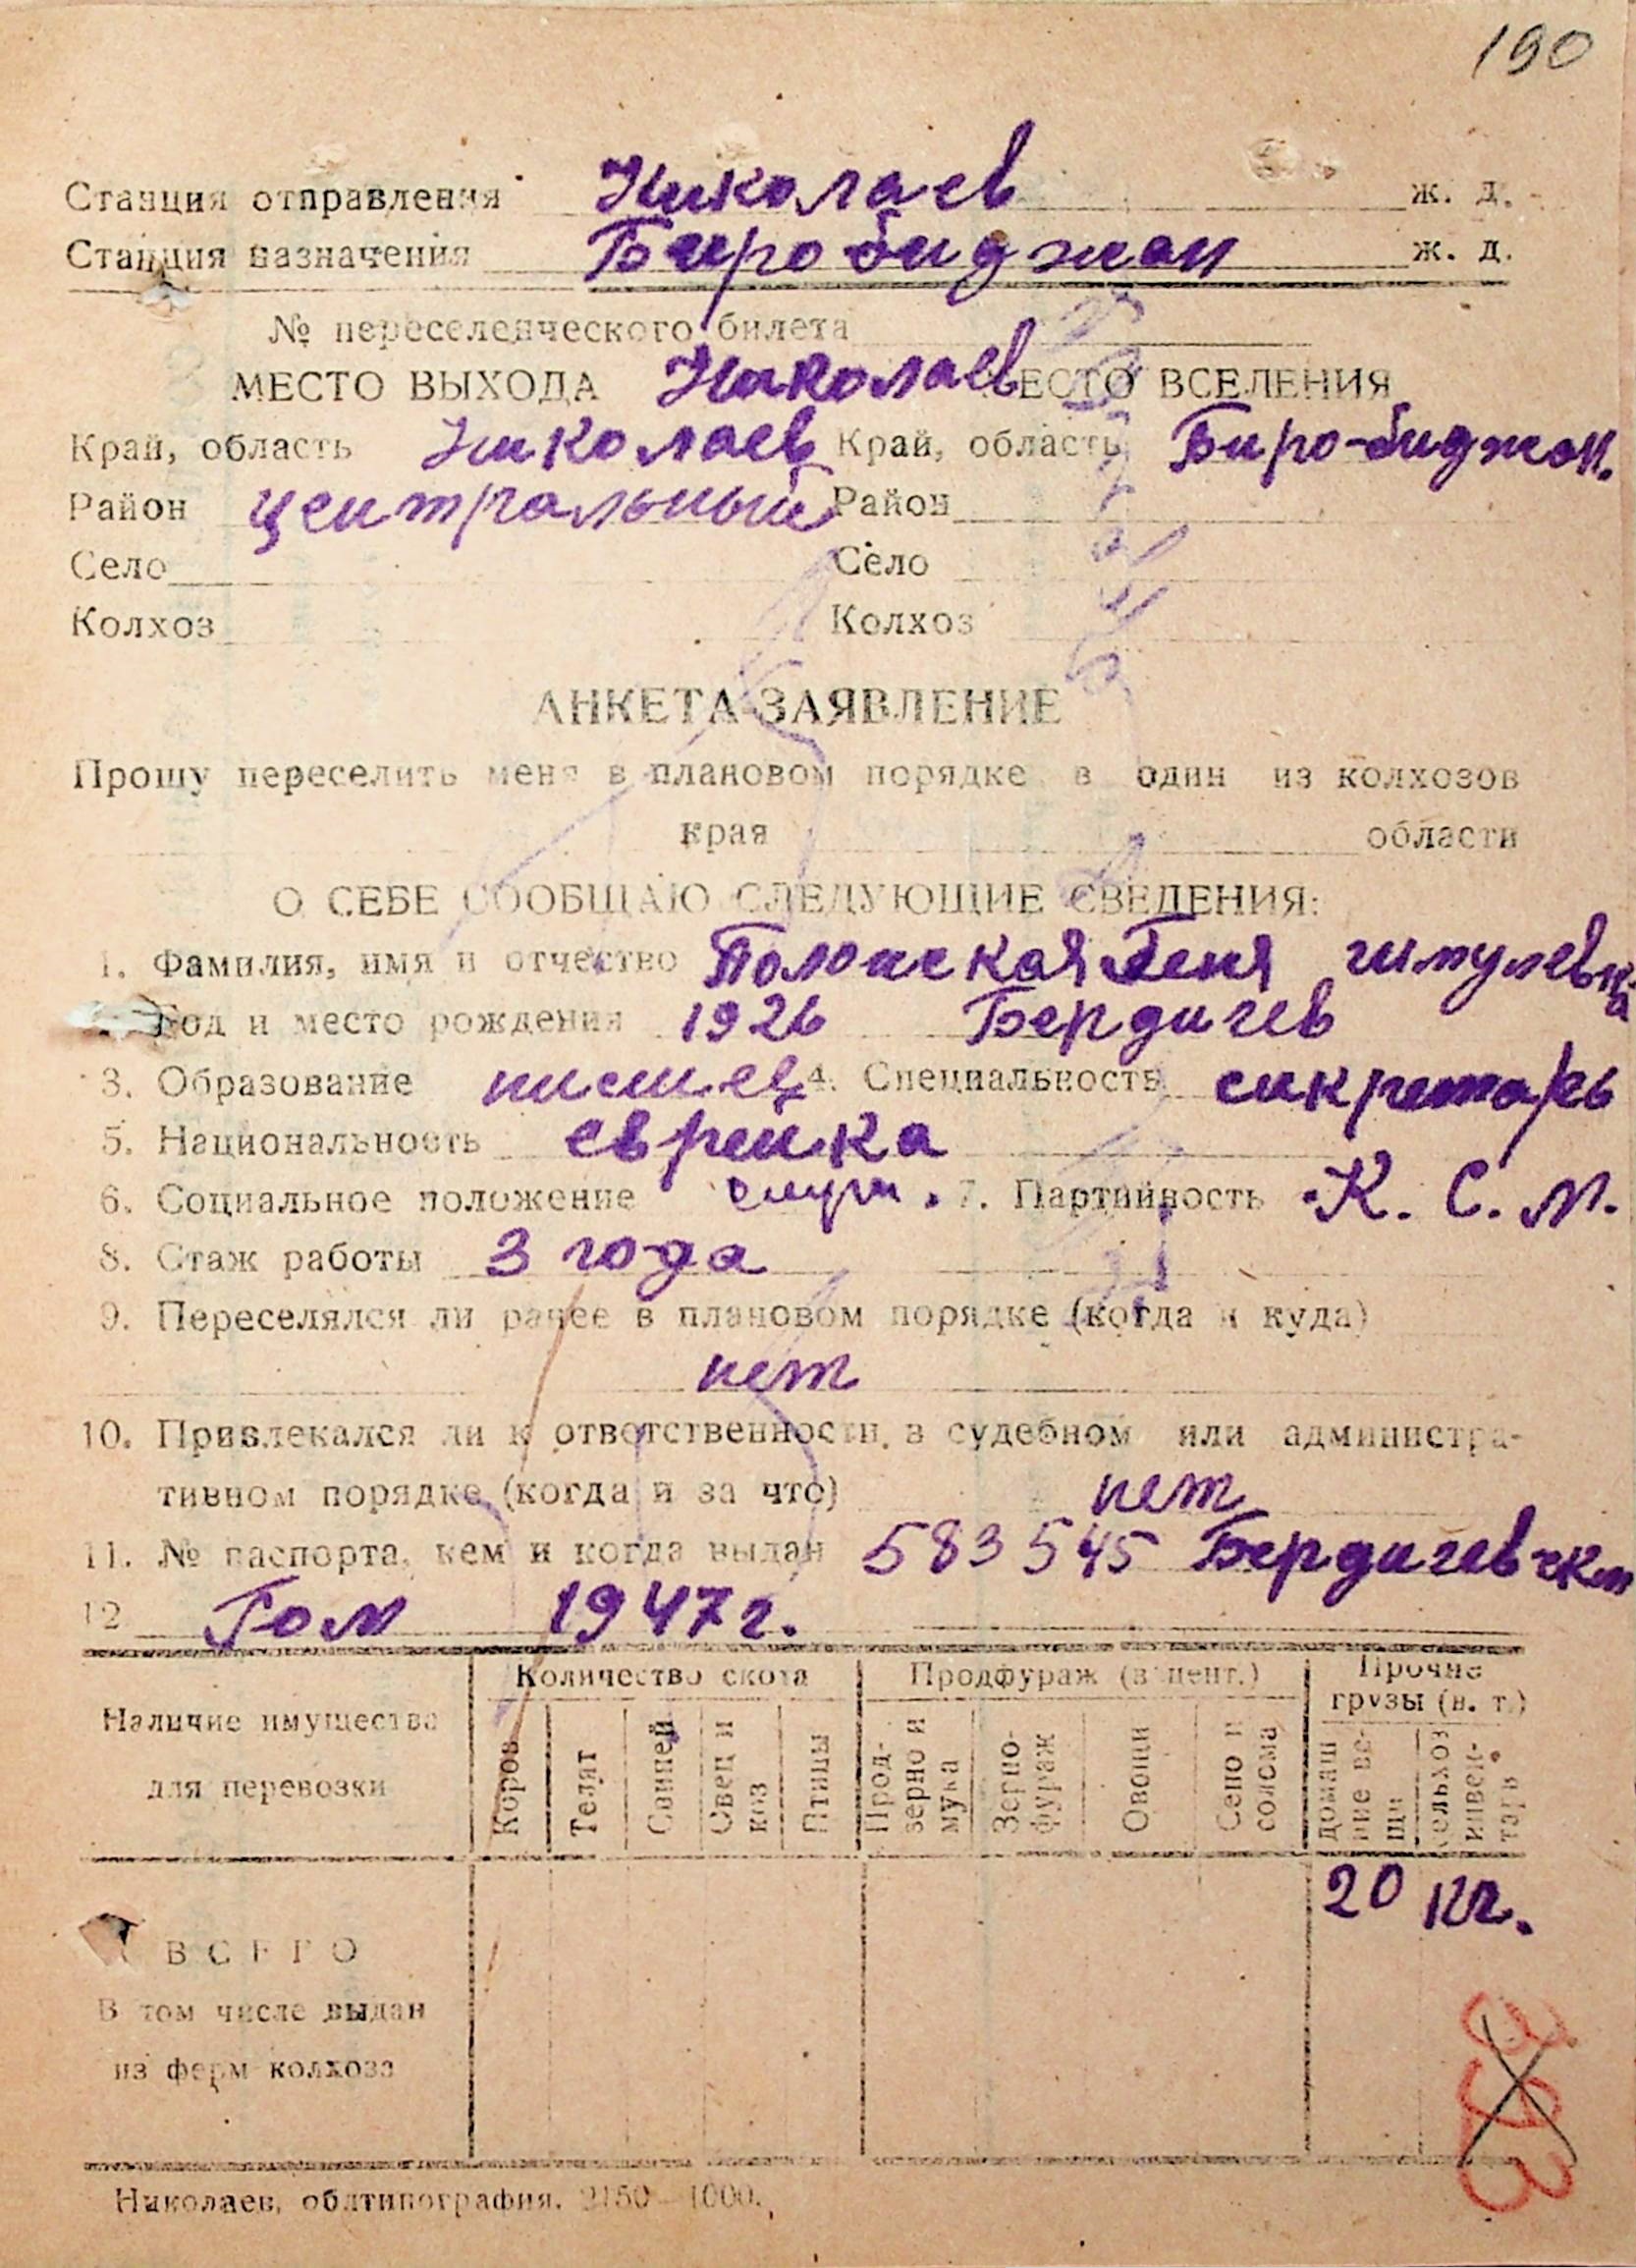 190
Станция отправления Николаев ж. д.
Станция назначения Биробиджан ж. д.
№ переселенческого билета
МЕСТО ВЫХОДА Николаев МЕСТО ВСЕЛЕНИЯ
Край, область Николаев Край, область Биро-биджан.
Район центральный Район
Село Село
Колхоз Колхоз
АНКЕТА-ЗАЯВЛЕНИЕ
Прошу переселить меня в плановом порядке в один из колхозов
края области
О СЕБЕ СООБЩАЮ СЛЕДУЮЩИЕ СВЕДЕНИЯ:
1. Фамилия, имя и отчество Полонская Геня
Год и место рождения 1926 Бердичев
3. Образование 4. Специальность сикретарь
5. Национальность еврейка
6. Социальное положение служ. 7. Партийность К. С. М.
8. Стаж работы 3 года
9. Переселялся ли ранее в плановом порядке (когда и куда)
нет
10. Привлекался ли к ответственности в судебном или администра-
тивном порядке (когда и за что) нет
11. № паспорта, кем и когда выдан 583545 Бердичевским
12 Гом 1947 г.
Наличие имущества для перевозки
Количество скота
Продфураж (в цент.)
Прочие грузы (в. т.)
Коров
Телят
Свиней
Овец и коз
Птицы
Прод-зерно и мука
Зерно-фураж
Овощи
Сено и солома
домашние вещи
сельхоз инвентарь
20 кг.
ВСЕГО
В том числе выдан
из ферм колхоза
Николаев, облтипография. 2150—1000.